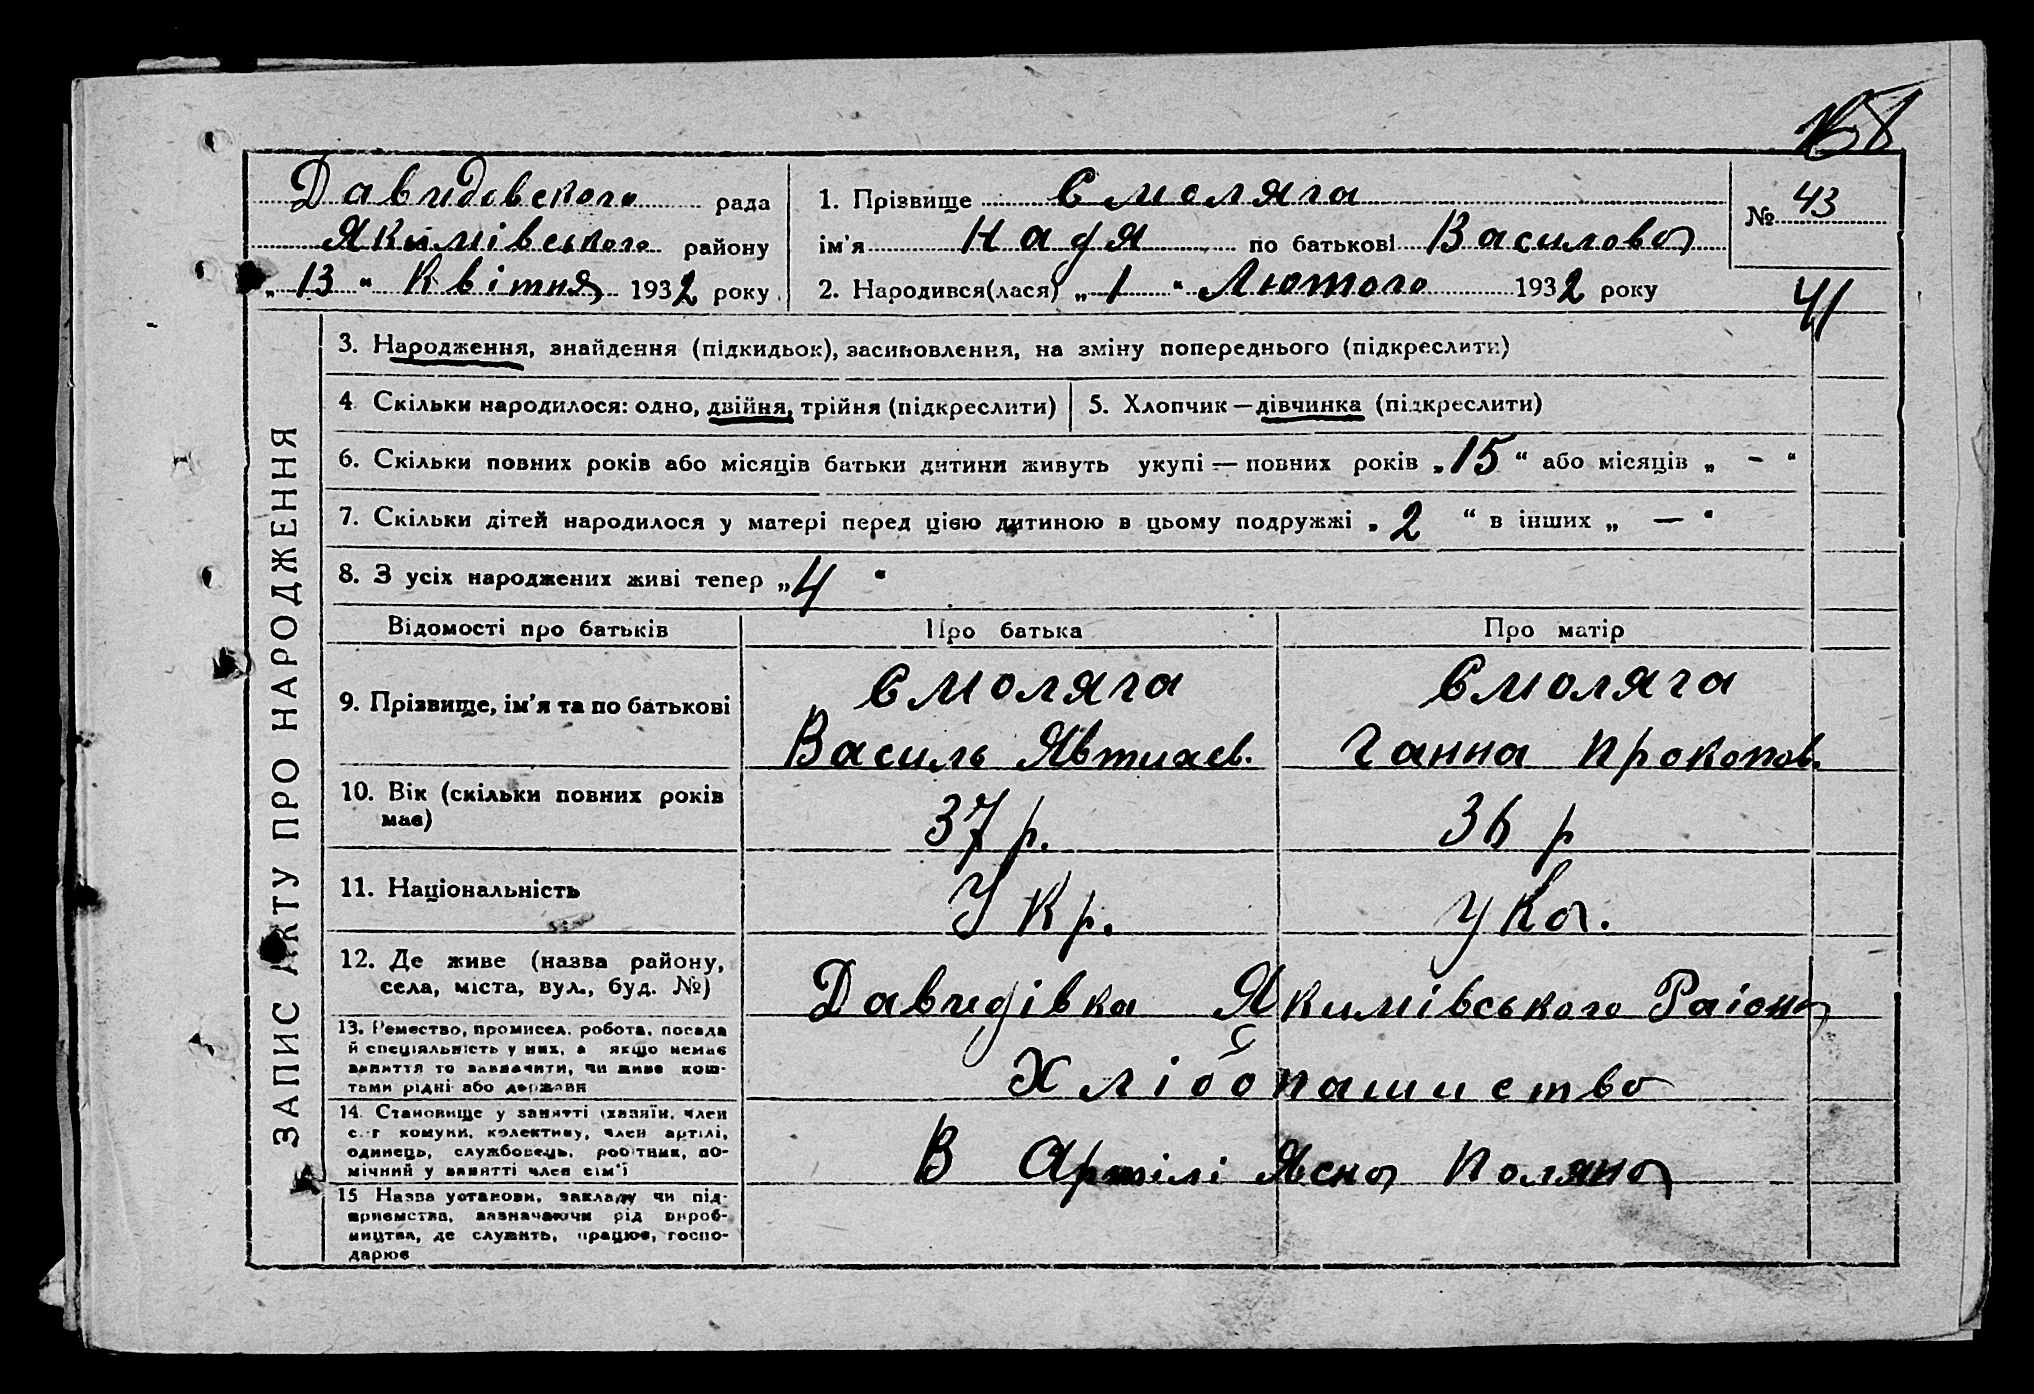 Давидовского рада
Якимівського району
„ 13 “ Квітня 1932 року
1. Прізвище Смоляга
ім'я Надя по батькові Василова
2. Народився(лася) „ 1 “ Лютого 1932 року
№ 43
41
ЗАПИС АКТУ ПРО НАРОДЖЕННЯ
3. Народження, знайдення (підкидьок), засиновлення, на зміну попереднього (підкреслити)
4 Скільки народилося: одно, двійня, трійня (підкреслити)
5. Хлопчик — дівчинка (підкреслити)
6. Скільки повних років або місяців батьки дитини живуть укупі — повних років „ 15 “ або місяців „ - “
7. Скільки дітей народилося у матері перед цією дитиною в цьому подружжі „ 2 “ в інших „ — “
8. З усіх народжених живі тепер „ 4 “
Відомості про батьків Про батька Про матір
9. Прізвище, ім'я та по батькові
Смоляга
Василь Явтихев.
Смоляга
Ганна Прокопов.
10. Вік (скільки повних років
має)
37 р.
36 р
11. Національність
Укр.
12. Де живе (назва району,
села, міста, вул., буд. №)
Давидівка Якимівського Раіона
13. Ремество, промисел, робота, посада
й спеціяльність у них, а якщо немає
заняття то зазначити, чи живе кош-
тами рідні або держави
Хлібопашиство
14. Становище у занятті (хазяїн, член
с.-г комуни, колективу, член артілі,
одинець, службовець, робітник, по-
мічний у занятті член сім'ї
В Артілі Ясна Поляна
15 Назва установи, закладу чи під-
приємства, зазначаючи рід вироб-
ництва, де служить, працює, госпо-
дарює